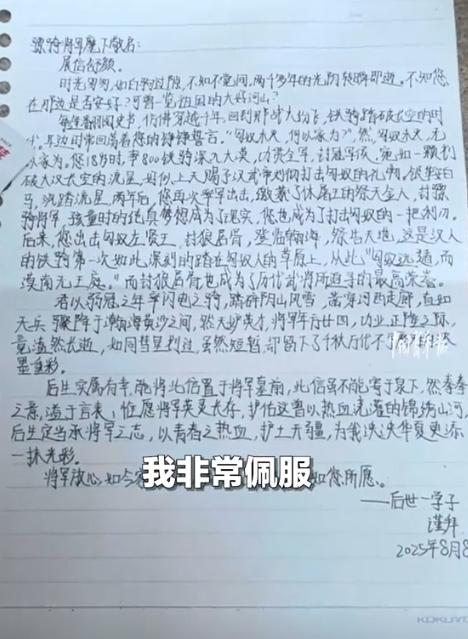 骠骑将军麾下敬启:
展信舒颜。
时光匆匆,如白驹过隙,不知不觉间,两千多年的光阴转瞬即逝。不知您
在那边是否安好?可曾一览祖国的大好河山?
每每看到史书,仿佛穿越千年,回到那战火纷飞,铁骑踏破长空的时
代。耳边时常回荡着您的铮铮誓言。"匈奴未灭,何以家为?"然,匈奴未灭,无
以家为。您18岁时,率800铁骑深入大漠,功冠全军,封冠军侯,宛如一颗划
破大汉长空的流星,好似上天赐予汉武帝刘彻打击匈奴的礼物,银鞍白
马,飒踏流星。两年后,您再次率军出击,缴获了休屠王的祭天金人,封骠
骑将军,孩童时的纯真梦您成为了现实,您也成为了打击匈奴的一把利刃。
后来,您出击匈奴左贤王,封狼居胥,登临翰海,祭告天地,这是汉人
的铁骑第一次如此深刻的踏在匈奴人的草原上,从此"匈奴远遁,而
漠南无王庭。"而封狼居胥也成为了历代武将所追寻的最高荣誉。
君以弱冠之年率闪电之骑,踏碎阴山风雪,荡穿河西走廊,直如
天兵骤降于瀚海黄沙之间,然天妒英才,将军年方廿四,功业正隆之际,
竟溘然长逝,如同彗星划过,虽然短暂,却留下了千秋万代不
墨重彩。
后生实属有幸,能将此信置于将军墓前,此信虽不能寄于泉下,然拳拳
之意,溢于言表;惟愿将军英灵长存,护佑这曾以热血浇灌的锦绣山河,
后生定当承将军之志,以青春之热血,护土无疆,为我泱泱华夏更添
一抹光彩。
将军放心,如今 如您所愿。
我非常佩服
——后世一学子
谨拜
2025年8月8
KOKUYO